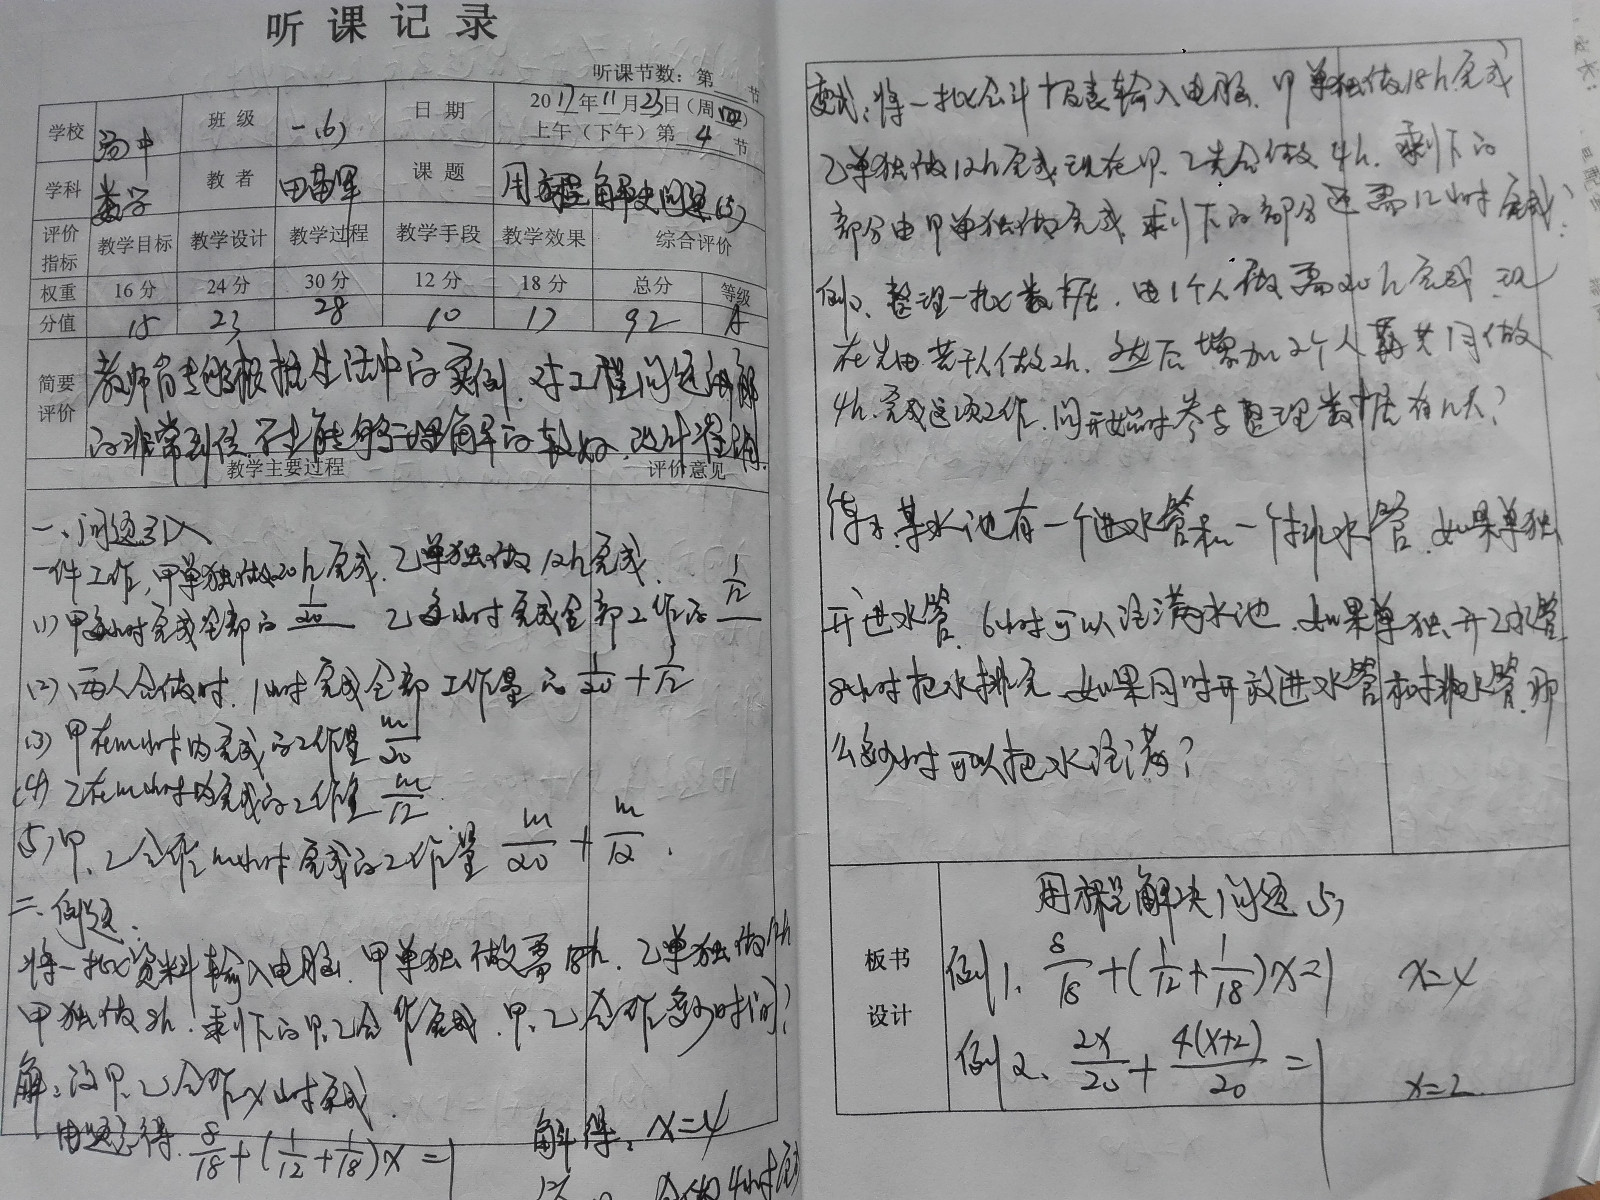 听课记录
听课节数：第 节
学校 汤中 班级 一(6) 日期 2017年11月23日（周四）
上午（下午）第 4 节
学科 数学 教者 课题 用方程解决问题(5)
评价指标 教学目标 教学设计 教学过程 教学手段 教学效果 综合评价
权重 16分 24分 30分 12分 18分 总分 等级
分值 15 23 28 10 17 92 A
简要评价 教师首先能够根据生活中的实例，对工程问题讲解
的非常到位，学生能够理解的较好，设计准确。
教学主要过程 评价意见
一、问题引入
一件工作，甲单独做20h完成，乙单独做12h完成．
(1) 甲每小时完成全部的 1/20 乙每小时完成全部工作的 1/12
(2) 两人合做时，1小时完成全部工作量的 1/20 + 1/12
(3) 甲在m小时内完成的工作量 m/20
(4) 乙在m小时内完成的工作量 m/12
(5) 甲、乙合作m小时完成的工作量 m/20 + m/12．
二、例题．
将一批资料输入电脑，甲单独做需18h，乙单独做12h
甲独做8h，剩下的甲、乙合作完成，甲、乙合作多少时间？
解：设甲、乙合作x小时完成．
由题意得 8/18 + (1/12 + 1/18)x = 1 解得：x=4
合做4小时完成
变式：将一批会计报表输入电脑，甲单独做18h完成
乙单独做12h完成，现在甲、乙先合做4h，剩下的
部分由甲单独做完成，剩下的部分还需几小时完成？
例2、整理一批数据，由1个人做需20h完成，现
在先由若干人做2h，然后增加2个人再共同做
4h，完成这项工作，问开始时参与整理数据有几人？
某水池有一个进水管和一个排水管，如果单独
开进水管，6小时可以注满水池，如果单独开排水管
8小时把水排完，如果同时开放进水管和排水管，那
么多少小时可以把水注满？
板书设计
用方程解决问题(5)
例1、8/18 + (1/12 + 1/18)x = 1 x=4
例2、2x/20 + 4(x+2)/20 = 1 x=2